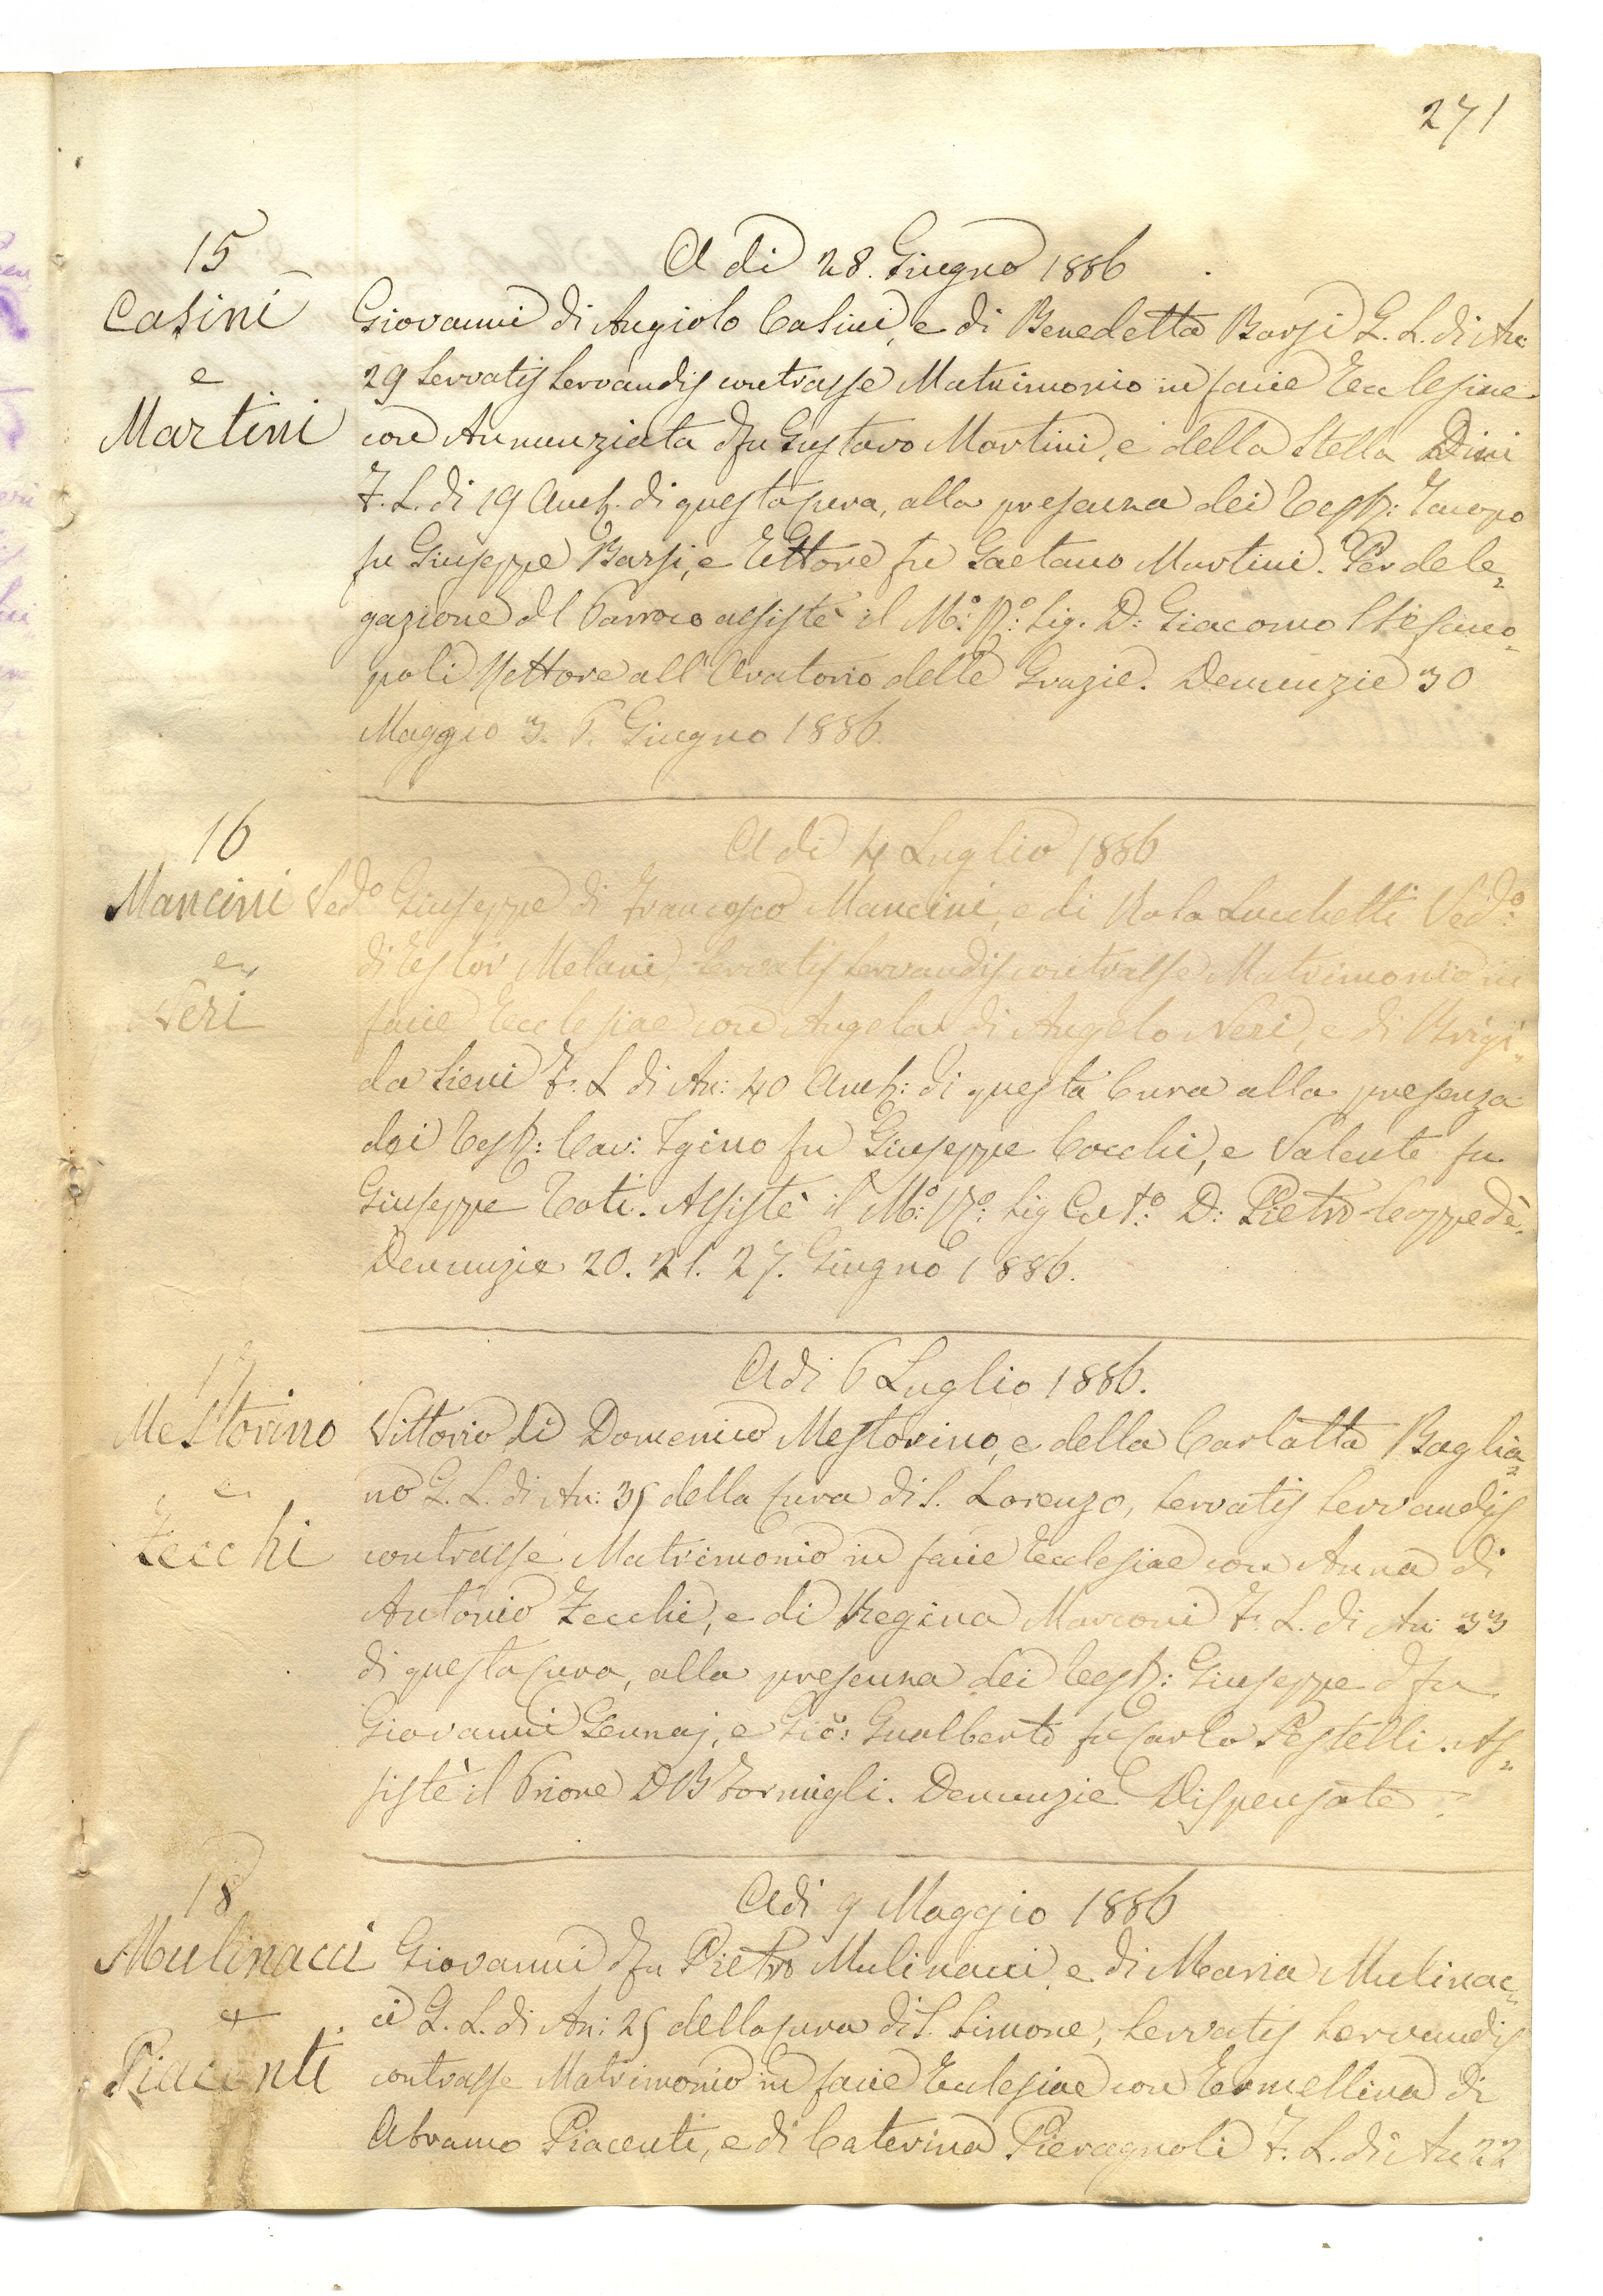 271
15
Casini
e
Martini
A dì 28. Giugno 1886
Giovanni di Angiolo Casini, e di Benedetta Barsi G. L. di An:
29 Servatis Servandis contrasse Matrimonio in facie Ecclesiae
con Annunziata d fu Gustavo Martini, e della Stella Dini
F. L. di 19 Amb. di questa Cura, alla presenza dei Test: Jacopo
fu Giuseppe Barsi, e Ettore fu Gaetano Martini. Per dele=
gazione del Parroco assistè il M:o R:o Sig. D: Giacomo Stefano=
poli Rettore all'Oratorio delle Grazie. Denunzie 30
Maggio 3. 6. Giugno 1886.
16
Mancini Ved:o
e
Neri
A dì 4 Luglio 1886
Giuseppe di Francesco Mancini, e di Rosa Lucchetti Ved:o
di Ester Melani, Servatis Servandis contrasse Matrimonio in
facie Ecclesiae con Angela di Angelo Neri, e di Brigi=
da Sieni F. L di An: 40 Amb: di questa Cura alla presenza
dei Test: Cav: Igino fu Giuseppe Cocchi, e Valente fu
Giuseppe Toti. Assistè il M:o R:o Sig Cat:o D: Pietro Coppedè.
Denunzie 20. 21. 27. Giugno 1886.
17
Mestorino
e
Zecchi
Adì 6 Luglio 1886.
Vittorio di Domenico Mestorino, e della Carlotta Baglia=
no G. L. di An: 35 della Cura di S. Lorenzo, Servatis Servandis
contrasse Matrimonio in facie Ecclesiae con Anna di
Antonio Zecchi, e di Regina Marconi F. L. di An: 33
di questa Cura, alla presenza dei Test: Giuseppe d fu
Giovanni Gennaj, e Gio: Gualberto fu Carlo Pestelli. As=
sistè il Priore D B Formigli. Denunzie Dispensate.
18
Mulinacci
e
Piacenti
Adì 9 Maggio 1886
Giovanni d fu Pietro Mulinacci, e di Maria Mulinac=
ci G. L. di An: 25 della Cura di S. Simone, Servatis Servandis
contrasse Matrimonio in facie Ecclesiae con Ermellina di
Abramo Piacenti, e di Caterina Pieragnoli F. L. di An: 22